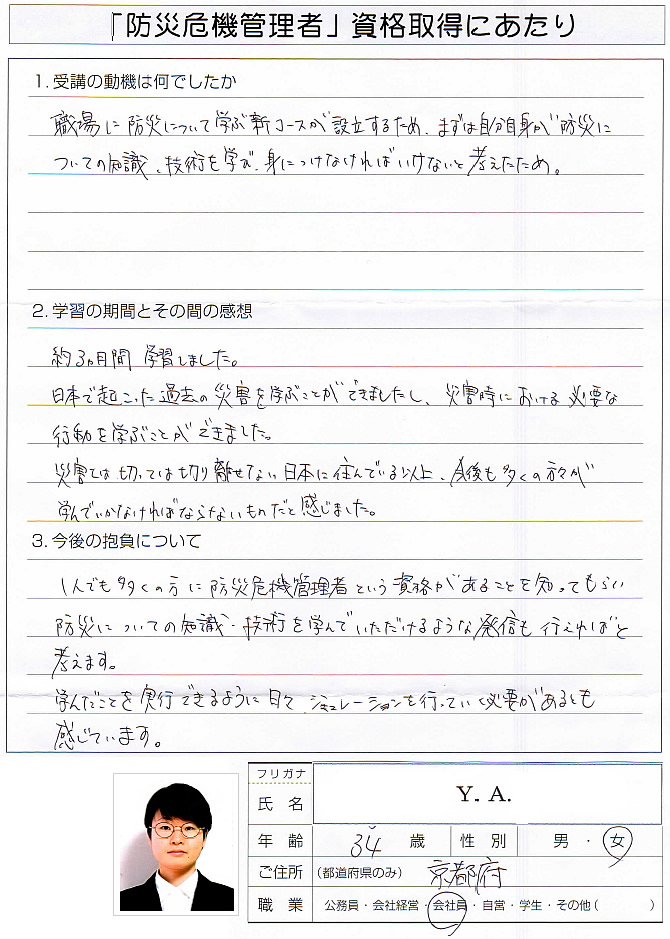 「防災危機管理者」資格取得にあたり
1. 受講の動機は何でしたか
職場に防災について学ぶ新コースが設立するため、まずは自分自身が防災に
ついての知識、技術を学び、身につけなければいけないと考えたため。
2. 学習の期間とその間の感想
約3ヵ月間 学習しました。
日本で起こった過去の災害を学ぶことができましたし、災害時における必要な
行動を学ぶことができました。
災害とは切っては切り離せない日本に住んでいる以上、今後も多くの方々が
学んでいかなければならないものだと感じました。
3. 今後の抱負について
1人でも多くの方に防災危機管理者という資格があることを知ってもらい
防災についての知識・技術を学んでいただけるような発信も行えればと
考えます。
学んだことを実行できるように日々シミュレーションを行っていく必要があるとも
感じています。
フリガナ
氏 名 Y. A.
年 齢 34 歳 性 別 男 ・ 女
ご住所 (都道府県のみ) 京都府
職 業 公務員・会社経営・会社員・自営・学生・その他 ( )